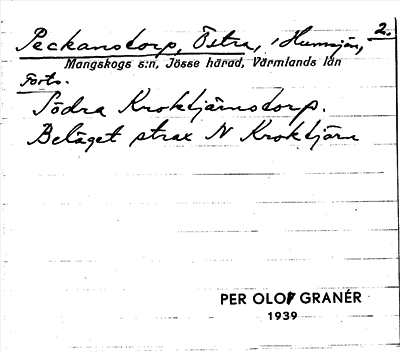 Peckanstorp, Östra, i Humsjön, 2.
Mangskogs s:n, Jösse härad, Värmlands län
Forts.
Södra Kroktjärnstorp.
Beläget strax N Kroktjärn
PER OLOF GRANÉR
1939